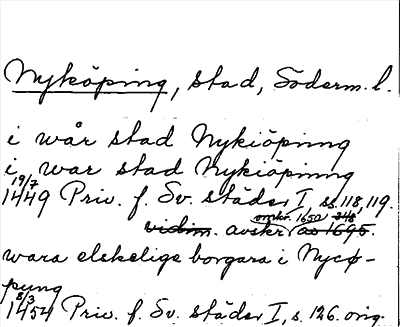 Nyköping, stad, Söderm. l.
i wår stad Nykiöping
i war stad Nykiöping
19/7 1449 Priv. f. Sv. städer I, ss. 118, 119.
omkr. 1650 348
vidim. avskr. av 1695.
wara elskelige borgara i Nycø-
pung
8/3 1454 Priv. f. Sv. städer I, s. 126. orig.